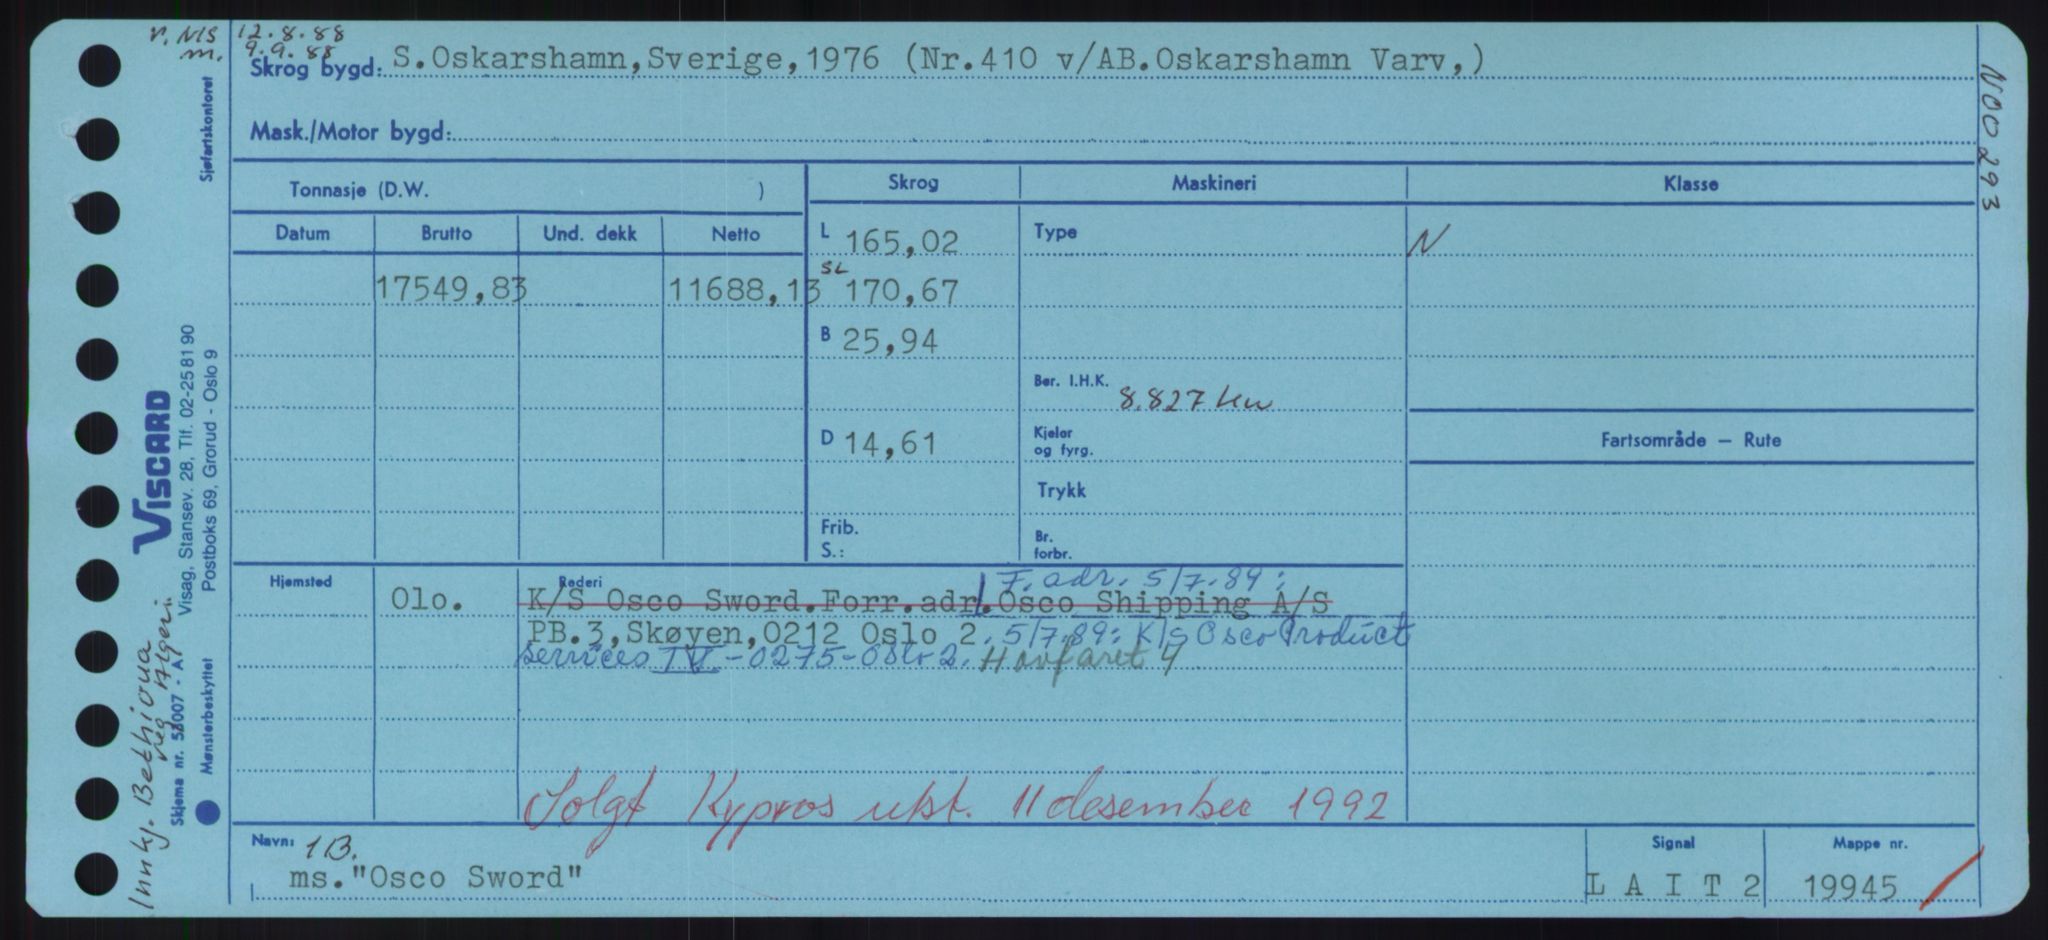 v. NIS 12.8.88
m. 9.9.88
Skrog bygd: S.Oskarshamn,Sverige,1976 (Nr.410 v/AB.Oskarshamn Varv,)
Mask./Motor bygd:
N00293
Sjøfartskontoret
Tonnasje (D.W. )
Skrog Maskineri Klasse
Datum Brutto Und. dekk Netto
L 165,02 Type N
17549,83 11688,13 SL 170,67
B 25,94
Ber. I.H.K. 8.827 kw
D 14,61 Kjeler og fyrg.
Fartsområde – Rute
Trykk
Frib. S.: Br. forbr.
VISCARD
Visag, Stansev. 28, Tlf. 02-25 81 90
Postboks 69, Grorud - Oslo 9
Hjemsted Rederi F. adr. 5/7.89:
Olo. K/S Osco Sword.Forr.adr.Osco Shipping A/S
PB.3,Skøyen,0212 Oslo 2. 5/7.89: K/S Osco Product
Services IV. - 0275 - Oslo 2. Havfaret 4
Solgt Kypros ukst. 11 desember 1992
Innkj. Bethioua
reg Algeri
Skjema nr. 53007 - A
Mønsterbeskyttet
Navn: 1B.
ms."Osco Sword"
Signal Mappe nr.
L A I T 2 19945